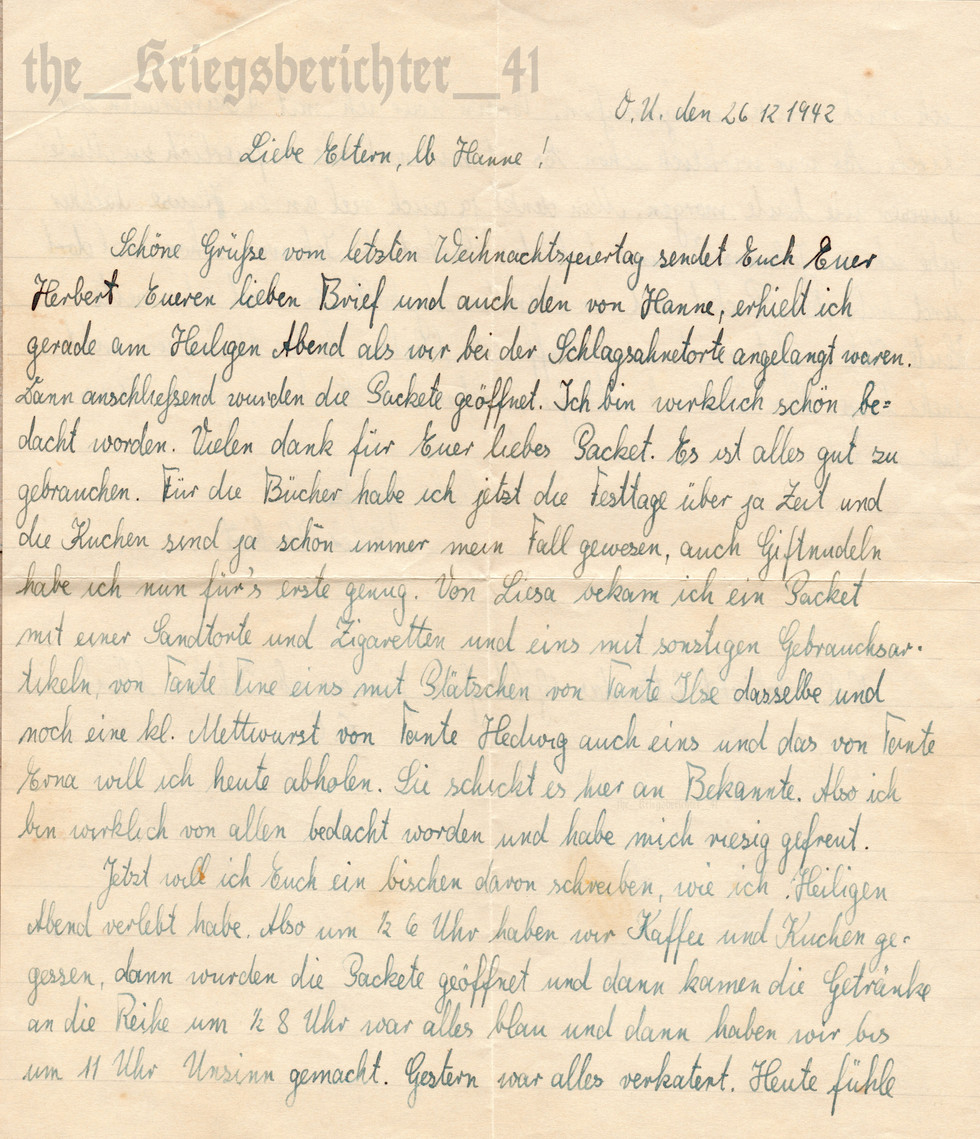 the_Kriegsberichter_41
O.U. den 26 12 1942
Liebe Eltern, lb Hanne!
Schöne Grüße vom letzten Weihnachtsfeiertag sendet Euch Euer
Herbert Eueren lieben Brief und auch den von Hanne, erhielt ich
gerade am Heiligen Abend als wir bei der Schlagsahnetorte angelangt waren.
Dann anschließend wurden die Packete geöffnet. Ich bin wirklich schön be=
dacht worden. Vielen dank für Euer liebes Packet. Es ist alles gut zu
gebrauchen. Für die Bücher habe ich jetzt die Festtage über ja Zeit und
die Kuchen sind ja schön immer mein Fall gewesen, auch Giftnudeln
habe ich nun für's erste genug. Von Liesa bekam ich ein Packet
mit einer Sandtorte und Zigaretten und eins mit sonstigen Gebrauchsar-
tikeln, von Tante Tine eins mit Plätzchen von Tante Ilse dasselbe und
noch eine kl. Mettwurst von Tante Hedwig auch eins und das von Tante
Erna will ich heute abholen. Sie schickt es hier an Bekannte. Also ich
bin wirklich von allen bedacht worden und habe mich riesig gefreut.
Jetzt will ich Euch ein bischen davon schreiben, wie ich Heiligen
Abend verlebt habe. Also um ½ 6 Uhr haben wir Kaffee und Kuchen ge-
gessen, dann wurden die Packete geöffnet und dann kamen die Getränke
an die Reihe um ½ 8 Uhr war alles blau und dann haben wir bis
um 11 Uhr Unsinn gemacht. Gestern war alles verkatert. Heute fühle